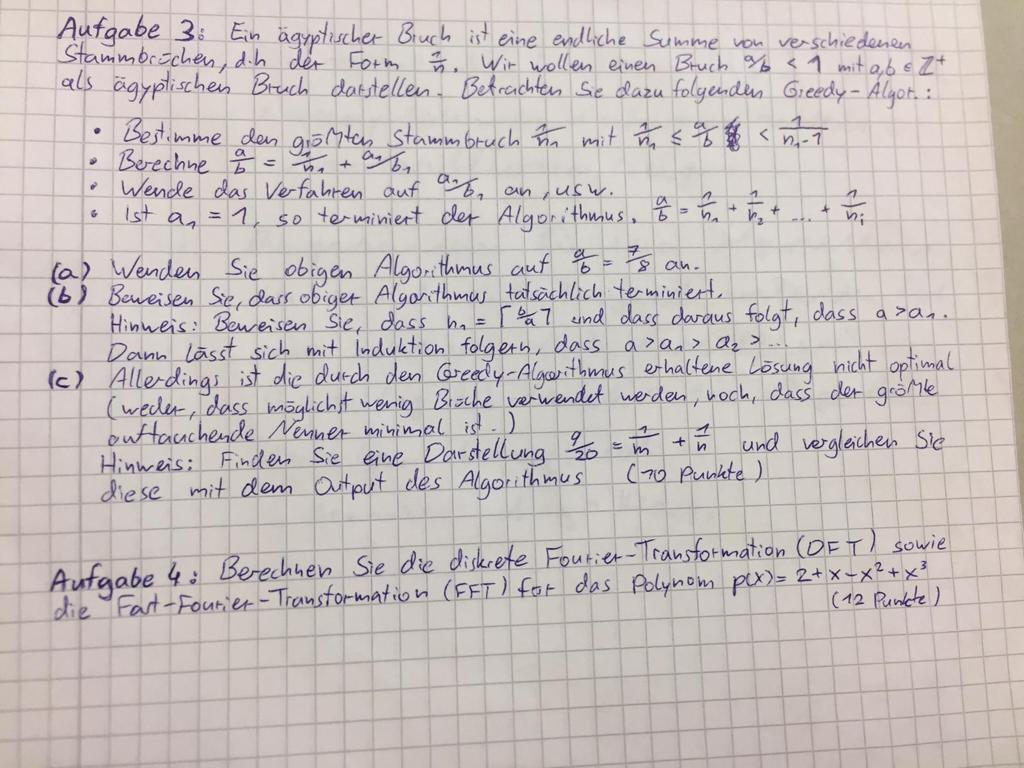 Aufgabe 3: Ein ägyptischer Bruch ist eine endliche Summe von verschiedenen
Stammbrüchen, d.h der Form 1/n. Wir wollen einen Bruch a/b < 1 mit a,b ∈ Z⁺
als ägyptischen Bruch darstellen. Betrachten Sie dazu folgenden Greedy-Algor.:
• Bestimme den größten Stammbruch 1/n₁ mit 1/n₁ ≤ a/b < 1/(n₁-1)
• Berechne a/b = 1/n₁ + a₁/b₁
• Wende das Verfahren auf a₁/b₁ an, usw.
• Ist a₁ = 1, so terminiert der Algorithmus. a/b = 1/n₁ + 1/n₂ + ... + 1/nᵢ
(a) Wenden Sie obigen Algorithmus auf a/b = 7/8 an.
(b) Beweisen Sie, dass obiger Algorithmus tatsächlich terminiert.
Hinweis: Beweisen Sie, dass n₁ = ⌈b/a⌉ und dass daraus folgt, dass a > a₁.
Dann lässt sich mit Induktion folgern, dass a > a₁ > a₂ > ...
(c) Allerdings ist die durch den Greedy-Algorithmus erhaltene Lösung nicht optimal
(weder, dass möglichst wenig Brüche verwendet werden, noch, dass der größte
auftauchende Nenner minimal ist.)
Hinweis: Finden Sie eine Darstellung 9/20 = 1/m + 1/n und vergleichen Sie
diese mit dem Output des Algorithmus (10 Punkte)
Aufgabe 4: Berechnen Sie die diskrete Fourier-Transformation (DFT) sowie
die Fast-Fourier-Transformation (FFT) für das Polynom p(x) = 2+x-x²+x³
(12 Punkte)